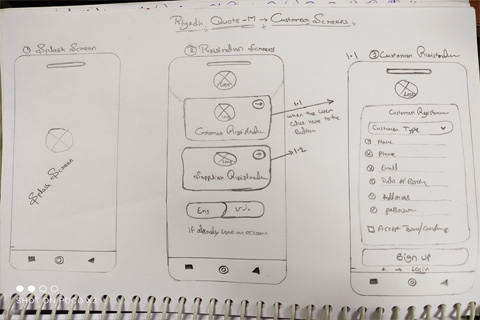 Riyadh Quote-M → Customer Screens
① Splash Screen
② Registration Screens
1.1 ③ Customer Registration
Logo
Splash Screen
Logo
Customer Registration
1.1
when the user
click here to the
Button
Supplier Registration
1.2
Eng
if already have an account
Logo
Customer Registration
Customer Type
Name
Phone
Email
Date of Birth
Address
password
Accept Term/Conditions
Sign up
Login
SHOT ON POCO X2